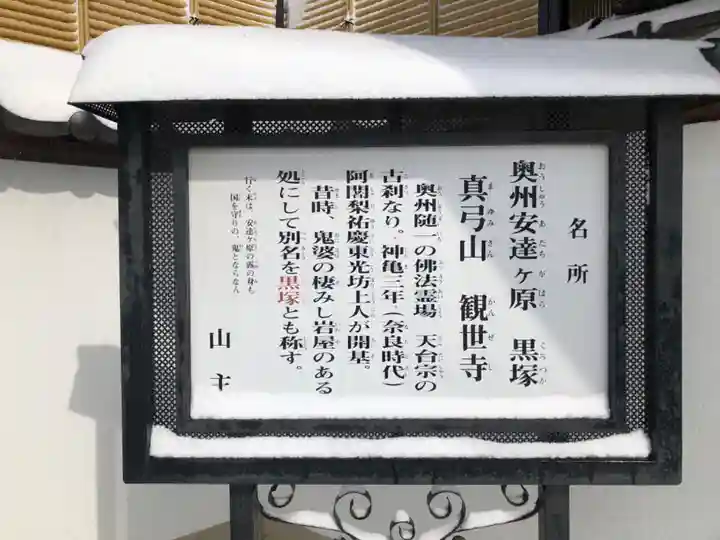 名所
奥州安達ヶ原 黒塚
真弓山 観世寺
奥州随一の佛法霊場 天台宗の
古刹なり。神亀三年(奈良時代)
阿闍梨祐慶東光坊上人が開基。
昔時、鬼婆の棲みし岩屋のある
処にして別名を黒塚とも称す。
行く末は、安達ヶ原の露の身も
国を守りの、鬼とならなん
山主